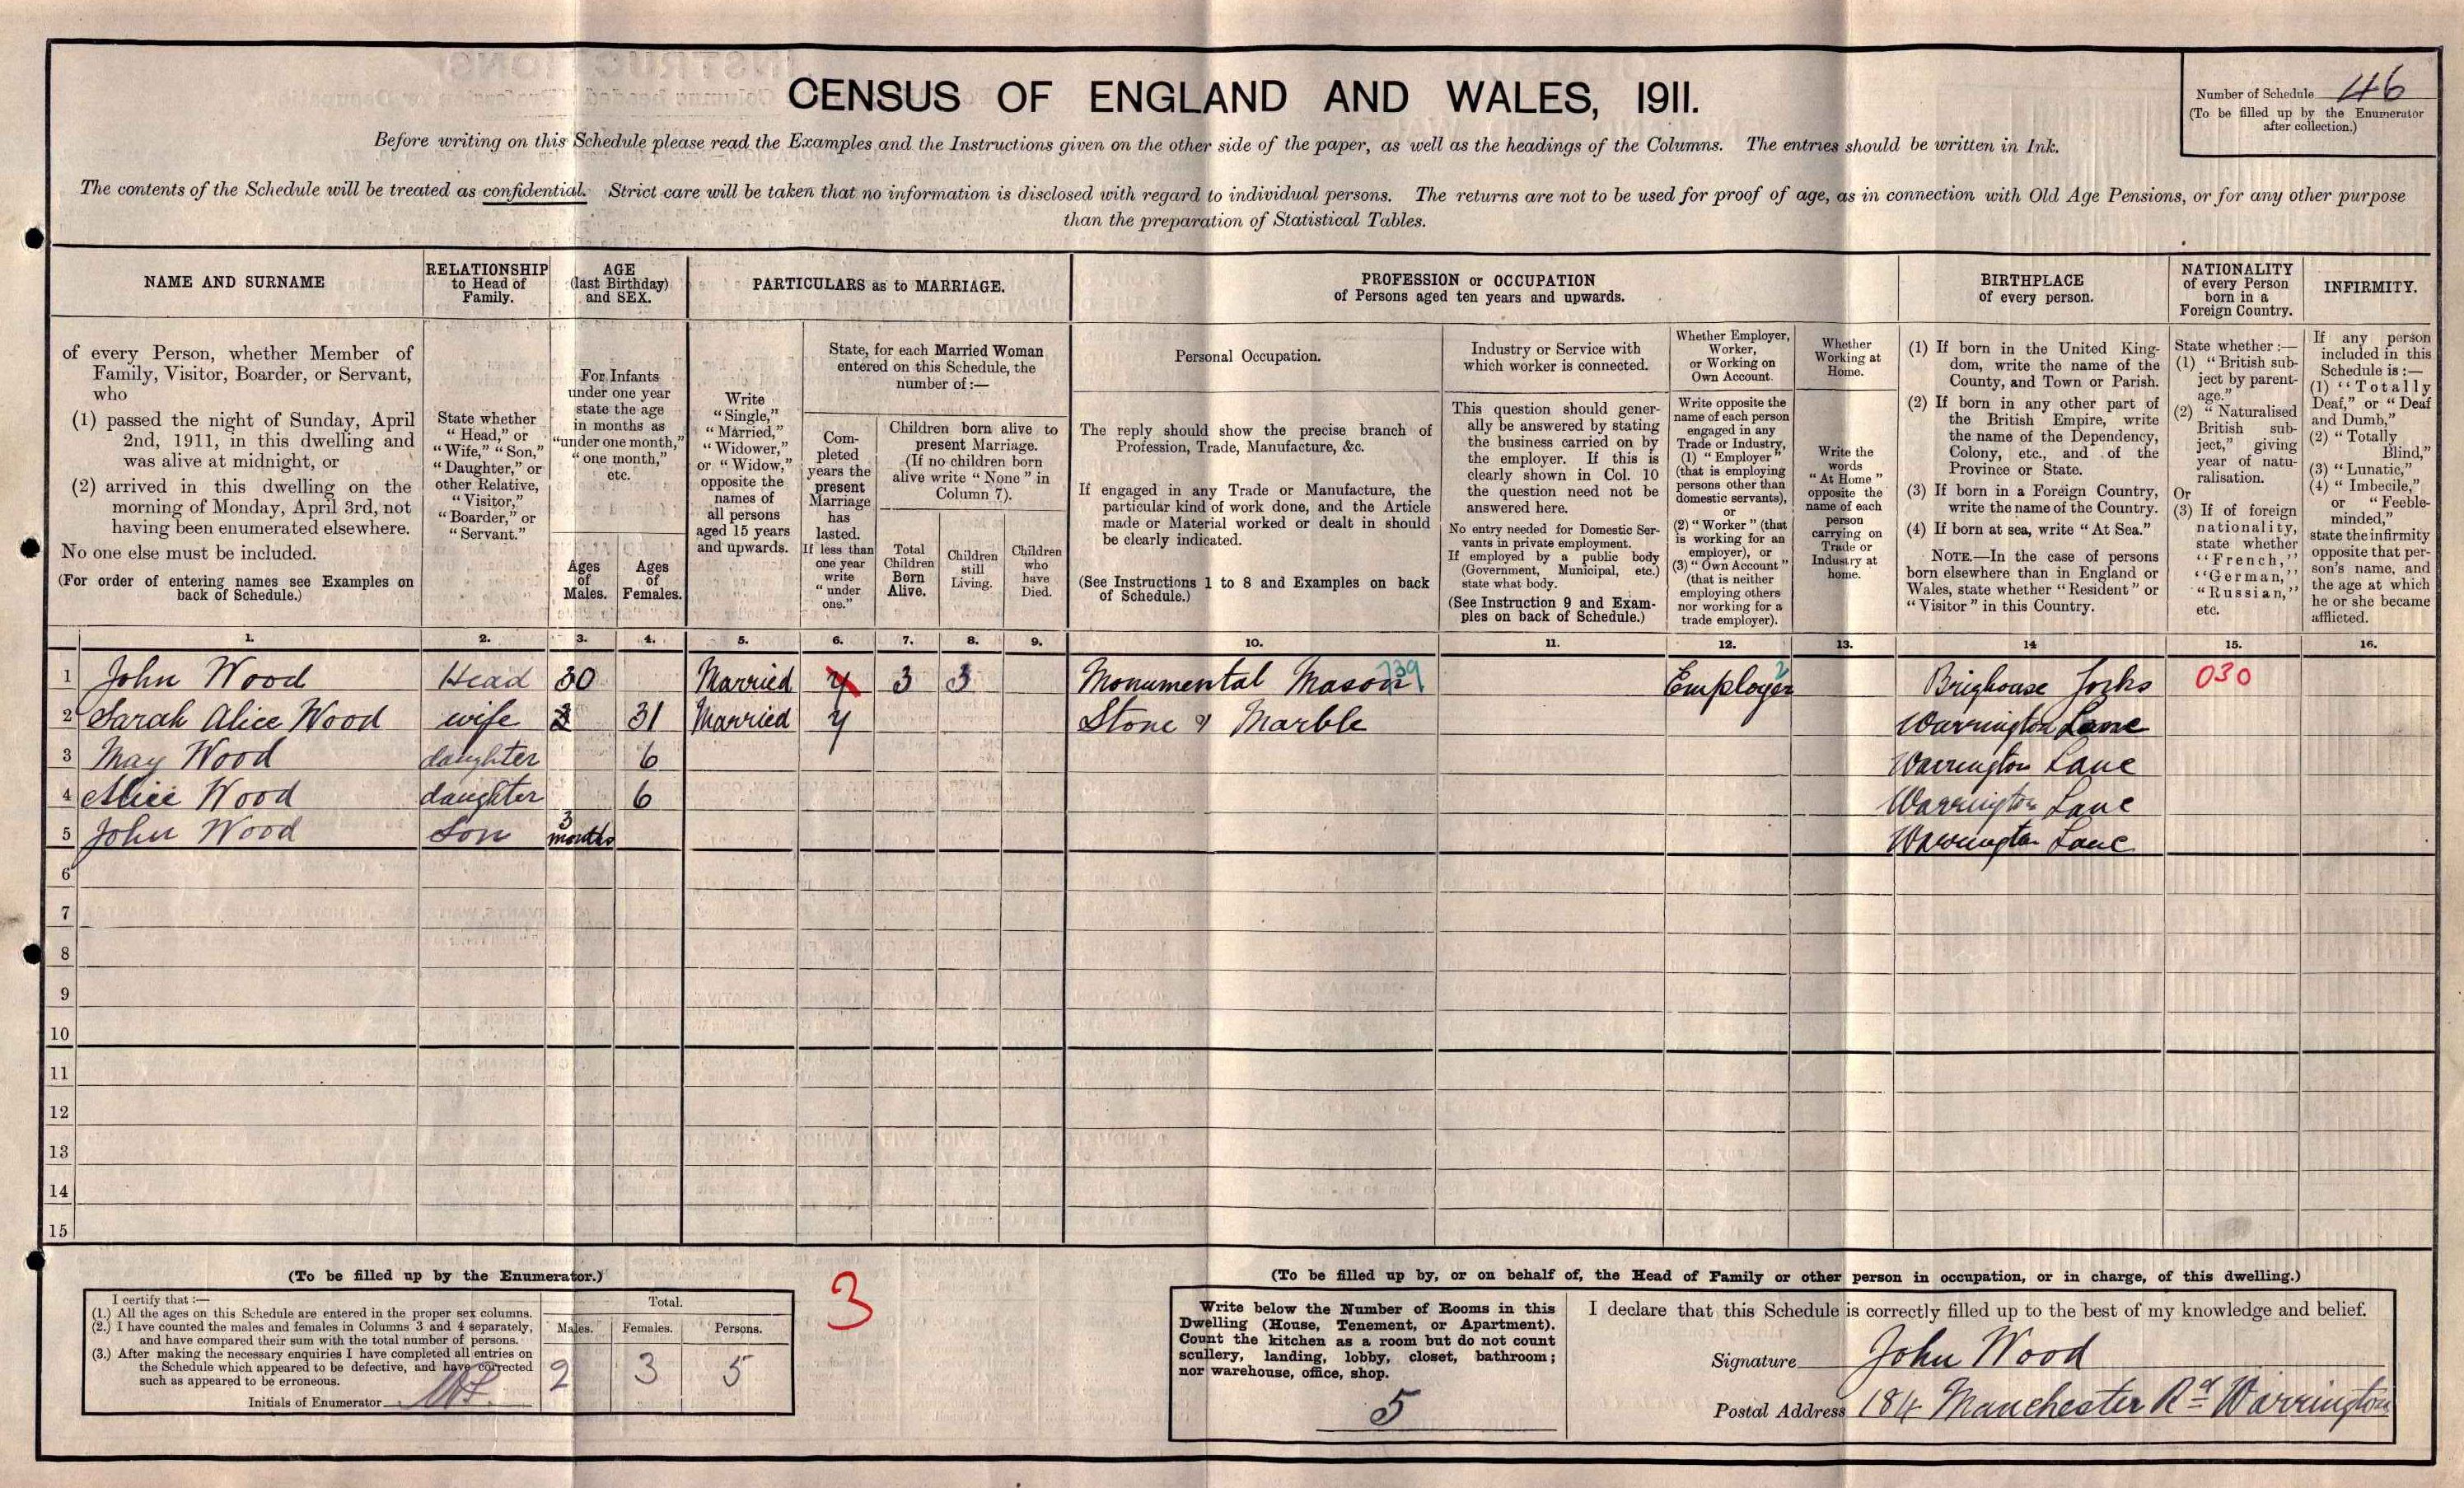 CENSUS OF ENGLAND AND WALES, 1911.
Number of Schedule 46
(To be filled up by the Enumerator
after collection.)
Before writing on this Schedule please read the Examples and the Instructions given on the other side of the paper, as well as the headings of the Columns. The entries should be written in Ink.
The contents of the Schedule will be treated as confidential. Strict care will be taken that no information is disclosed with regard to individual persons. The returns are not to be used for proof of age, as in connection with Old Age Pensions, or for any other purpose
than the preparation of Statistical Tables.
NAME AND SURNAME
of every Person, whether Member of
Family, Visitor, Boarder, or Servant,
who
(1) passed the night of Sunday, April
2nd, 1911, in this dwelling and
was alive at midnight, or
(2) arrived in this dwelling on the
morning of Monday, April 3rd, not
having been enumerated elsewhere.
No one else must be included.
(For order of entering names see Examples on
back of Schedule.)
RELATIONSHIP
to Head of
Family.
State whether
"Head," or
"Wife," "Son,"
"Daughter," or
other Relative,
"Visitor,"
"Boarder," or
"Servant."
AGE
(last Birthday)
and SEX.
For Infants
under one year
state the age
in months as
"under one month,"
"one month,"
etc.
Ages
of
Males.
Ages
of
Females.
PARTICULARS as to MARRIAGE.
Write
"Single,"
"Married,"
"Widower,"
or "Widow,"
opposite the
names of
all persons
aged 15 years
and upwards.
State, for each Married Woman
entered on this Schedule, the
number of:—
Com-
pleted
years the
present
Marriage
has
lasted.
If less than
one year
write
"under
one."
Children born alive to
present Marriage.
(If no children born
alive write "None" in
Column 7).
Total
Children
Born
Alive.
Children
still
Living.
Children
who
have
Died.
PROFESSION or OCCUPATION
of Persons aged ten years and upwards.
Personal Occupation.
The reply should show the precise branch of
Profession, Trade, Manufacture, &c.
If engaged in any Trade or Manufacture, the
particular kind of work done, and the Article
made or Material worked or dealt in should
be clearly indicated.
(See Instructions 1 to 8 and Examples on back
of Schedule.)
Industry or Service with
which worker is connected.
This question should gener-
ally be answered by stating
the business carried on by
the employer. If this is
clearly shown in Col. 10
the question need not be
answered here.
No entry needed for Domestic Ser-
vants in private employment.
If employed by a public body
(Government, Municipal, etc.)
state what body.
(See Instruction 9 and Exam-
ples on back of Schedule.)
Whether Employer,
Worker,
or Working on
Own Account.
Write opposite the
name of each person
engaged in any
Trade or Industry,
(1) "Employer"
(that is employing
persons other than
domestic servants),
or
(2) "Worker" (that
is working for an
employer), or
(3) "Own Account"
(that is neither
employing others
nor working for a
trade employer).
Whether
Working at
Home.
Write the
words
"At Home"
opposite the
name of each
person
carrying on
Trade or
Industry at
home.
BIRTHPLACE
of every person.
(1) If born in the United King-
dom, write the name of the
County, and Town or Parish.
(2) If born in any other part of
the British Empire, write
the name of the Dependency,
Colony, etc., and of the
Province or State.
(3) If born in a Foreign Country,
write the name of the Country.
(4) If born at sea, write "At Sea."
NOTE.—In the case of persons
born elsewhere than in England or
Wales, state whether "Resident" or
"Visitor" in this Country.
NATIONALITY
of every Person
born in a
Foreign Country.
State whether:—
(1) "British sub-
ject by parent-
age."
(2) "Naturalised
British sub-
ject," giving
year of natu-
ralisation.
Or
(3) If of foreign
nationality,
state whether
"French,"
"German,"
"Russian,"
etc.
INFIRMITY.
If any person
included in this
Schedule is:—
(1) "Totally
Deaf," or "Deaf
and Dumb,"
(2) "Totally
Blind,"
(3) "Lunatic,"
(4) "Imbecile,"
or "Feeble-
minded,"
state the infirmity
opposite that per-
son's name, and
the age at which
he or she became
afflicted.
1. 2. 3. 4. 5. 6. 7. 8. 9. 10. 11. 12. 13. 14 15. 16.
1 John Wood Head 30 Married 7 3 3 Monumental Mason 739 Employer 2 Brighouse Yorks 030
2 Sarah Alice Wood wife 31 Married 7 Stone & Marble Warrington Lanc
3 May Wood daughter 6 Warrington Lanc
4 Alice Wood daughter 6 Warrington Lanc
5 John Wood Son 3 months Warrington Lanc
6
7
8
9
10
11
12
13
14
15
(To be filled up by the Enumerator.)
I certify that:—
(1.) All the ages on this Schedule are entered in the proper sex columns.
(2.) I have counted the males and females in Columns 3 and 4 separately,
and have compared their sum with the total number of persons.
(3.) After making the necessary enquiries I have completed all entries on
the Schedule which appeared to be defective, and have corrected
such as appeared to be erroneous.
Initials of Enumerator
Total.
Males. Females. Persons.
2 3 5
3
(To be filled up by, or on behalf of, the Head of Family or other person in occupation, or in charge, of this dwelling.)
Write below the Number of Rooms in this
Dwelling (House, Tenement, or Apartment).
Count the kitchen as a room but do not count
scullery, landing, lobby, closet, bathroom;
nor warehouse, office, shop.
5
I declare that this Schedule is correctly filled up to the best of my knowledge and belief.
Signature John Wood
Postal Address 184 Manchester Rd Warrington